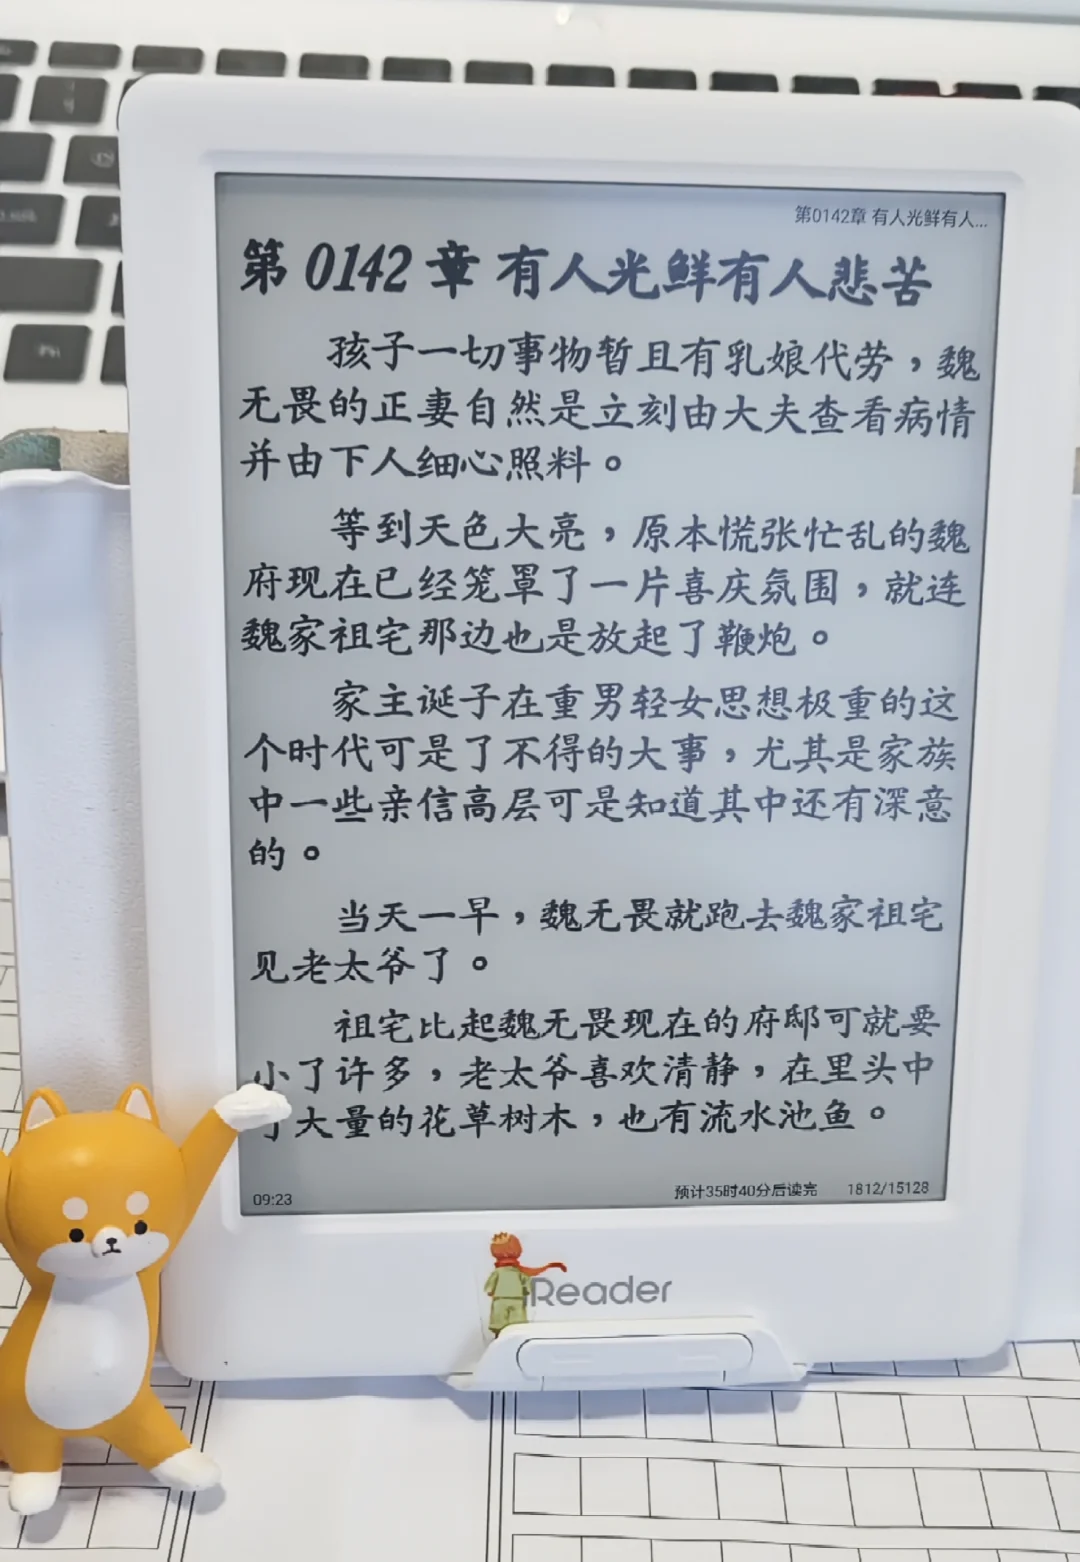 第0142章 有人光鲜有人...
第 0142 章 有人光鲜有人悲苦
孩子一切事物暂且有乳娘代劳，魏
无畏的正妻自然是立刻由大夫查看病情
并由下人细心照料。
等到天色大亮，原本慌张忙乱的魏
府现在已经笼罩了一片喜庆氛围，就连
魏家祖宅那边也是放起了鞭炮。
家主诞子在重男轻女思想极重的这
个时代可是了不得的大事，尤其是家族
中一些亲信高层可是知道其中还有深意
的。
当天一早，魏无畏就跑去魏家祖宅
见老太爷了。
祖宅比起魏无畏现在的府邸可就要
小了许多，老太爷喜欢清静，在里头中
了大量的花草树木，也有流水池鱼。
09:23
预计35时40分后读完
1812/15128
Reader